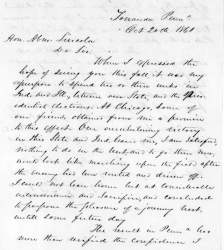 Towanda Penn'a
Oct 20th 1860
Hon. Abm Lincoln
Dr Sir.
When I expressed the
hope of seeing you this fall it was my
purpose to spend two or three weeks in
Ind. and Ills, between our State, and the Pres-
idential elections. At Chicago, some of
our friends obtained from me a promise
to this effect. Our overwhelming victory
in this State and Ind. leaves me, I am satisfied
nothing to do in the contest in your State,
would look like marching upon the field after
the enemy has been routed and driven off.
I could not leave home but at considerable
inconvenience and sacrifice, and concluded
to postpone the pleasure of a journey West,
until some future day.
The result in Penn'a has
more than verified the confidence I